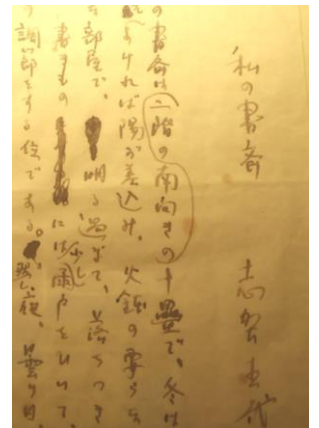 私の書斎 志賀直哉
の書斎は二階の南向きの十畳で、冬は
よければ陽が差込み、火鉢の要らな
な部屋で、明る過ぎて、落ちつき
書きもの には少し雨戸をひいて、
の調節をする位である。 曇り日、